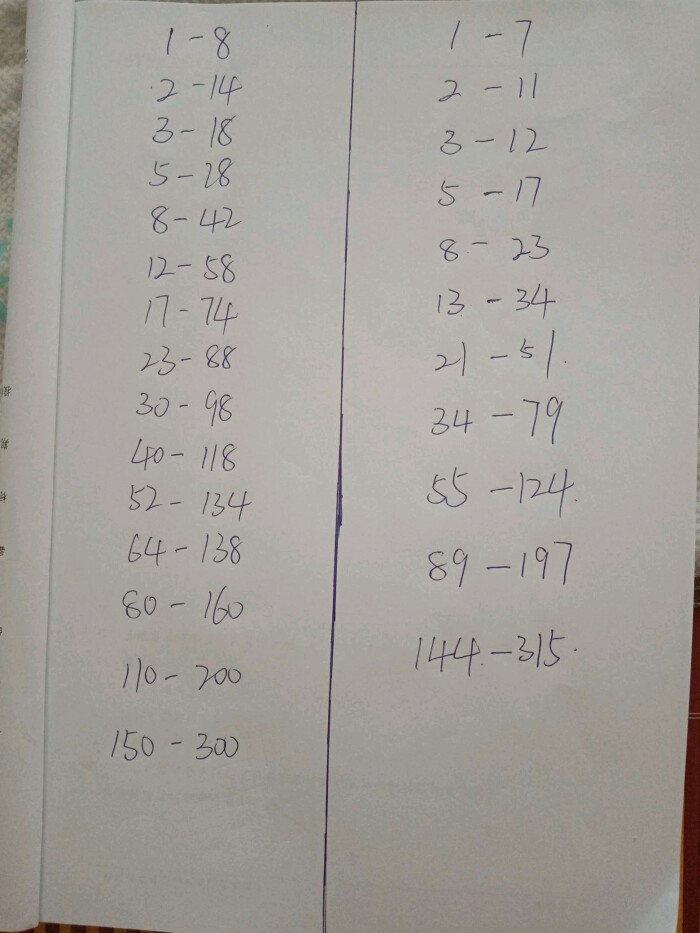 1-8
2-14
3-18
5-28
8-42
12-58
17-74
23-88
30-98
40-118
52-134
64-138
80-160
110-200
150-300
1-7
2-11
3-12
5-17
8-23
13-34
21-51.
34-79
55-124.
89-197
144.-315.